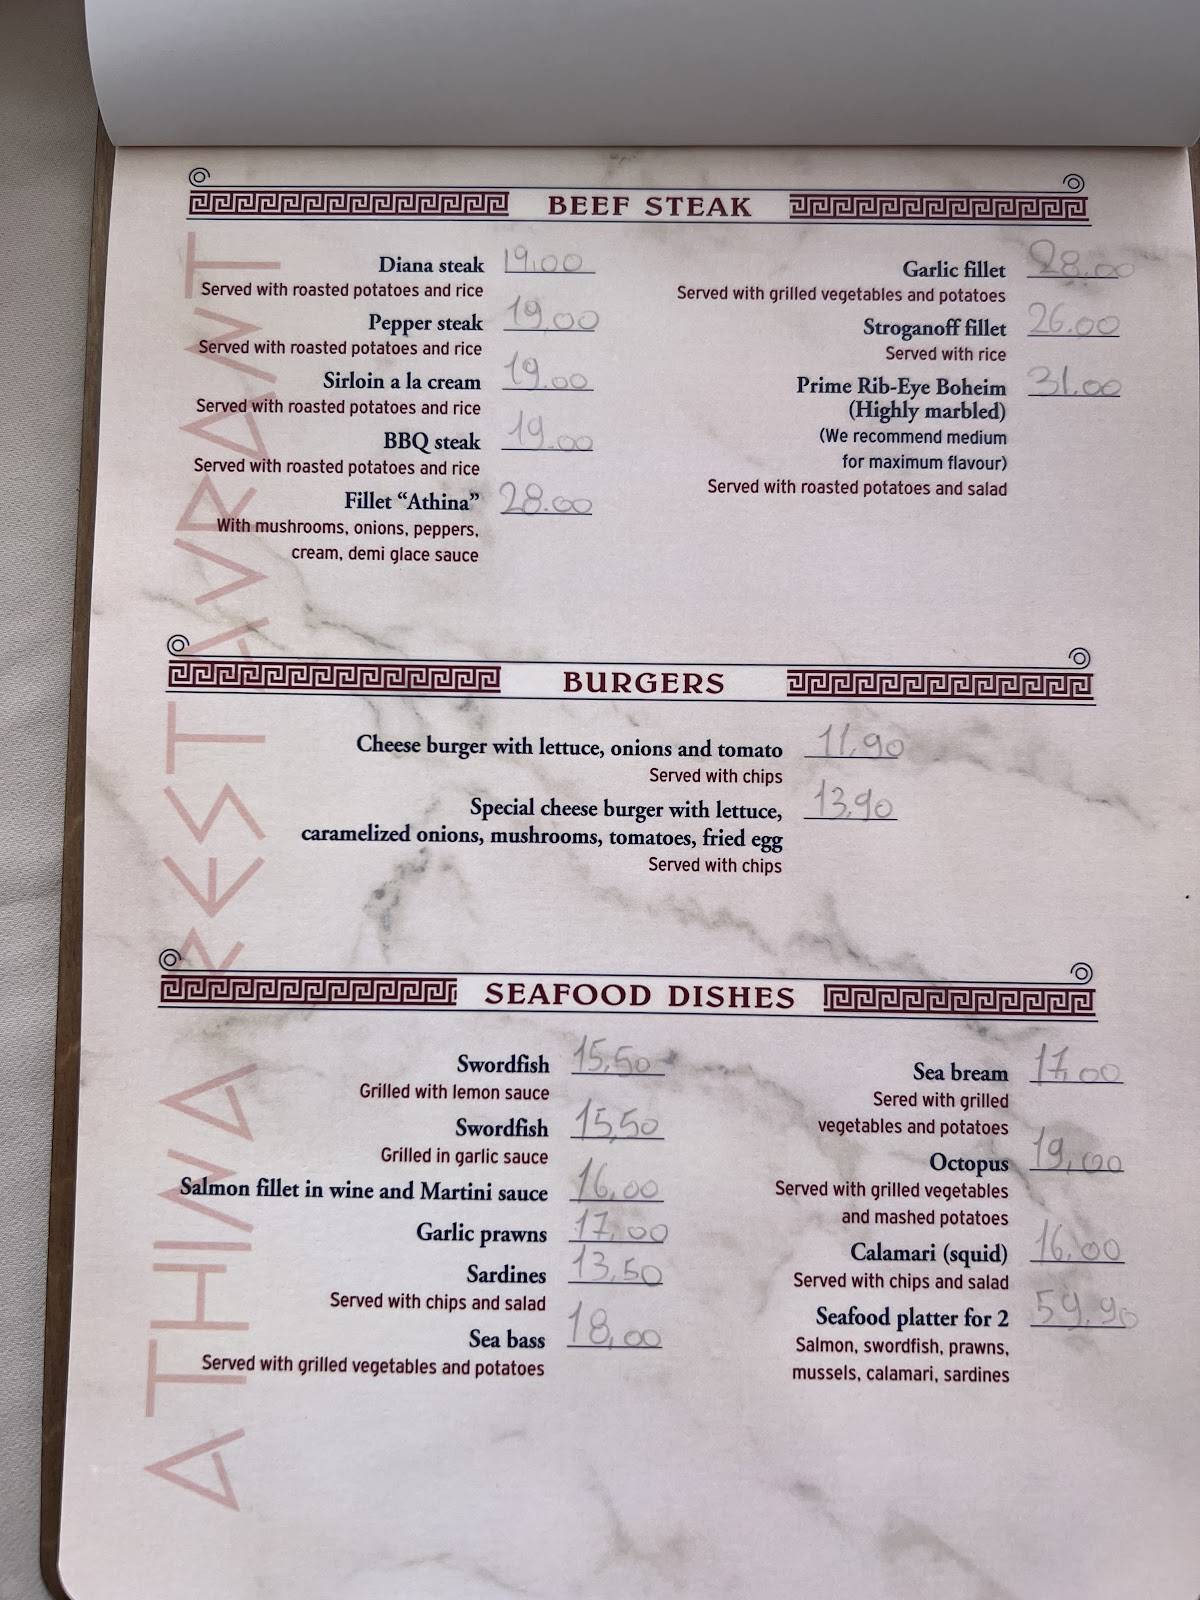 BEEF STEAK
Diana steak 19.00
Served with roasted potatoes and rice
Pepper steak 19.00
Served with roasted potatoes and rice
Sirloin a la cream 19.00
Served with roasted potatoes and rice
BBQ steak 19.00
Served with roasted potatoes and rice
Fillet “Athina” 28.00
With mushrooms, onions, peppers,
cream, demi glace sauce
Garlic fillet 28.00
Served with grilled vegetables and potatoes
Stroganoff fillet 26.00
Served with rice
Prime Rib-Eye Boheim 31.00
(Highly marbled)
(We recommend medium
for maximum flavour)
Served with roasted potatoes and salad
BURGERS
Cheese burger with lettuce, onions and tomato 11,90
Served with chips
Special cheese burger with lettuce, 13,90
caramelized onions, mushrooms, tomatoes, fried egg
Served with chips
SEAFOOD DISHES
Swordfish 15,50
Grilled with lemon sauce
Swordfish 15,50
Grilled in garlic sauce
Salmon fillet in wine and Martini sauce 16,00
Garlic prawns 17,00
Sardines 13,50
Served with chips and salad
Sea bass 18,00
Served with grilled vegetables and potatoes
Sea bream 17,00
Sered with grilled
vegetables and potatoes
Octopus 19,00
Served with grilled vegetables
and mashed potatoes
Calamari (squid) 16,00
Served with chips and salad
Seafood platter for 2 59,90
Salmon, swordfish, prawns,
mussels, calamari, sardines
ATHINA RESTAVRANT